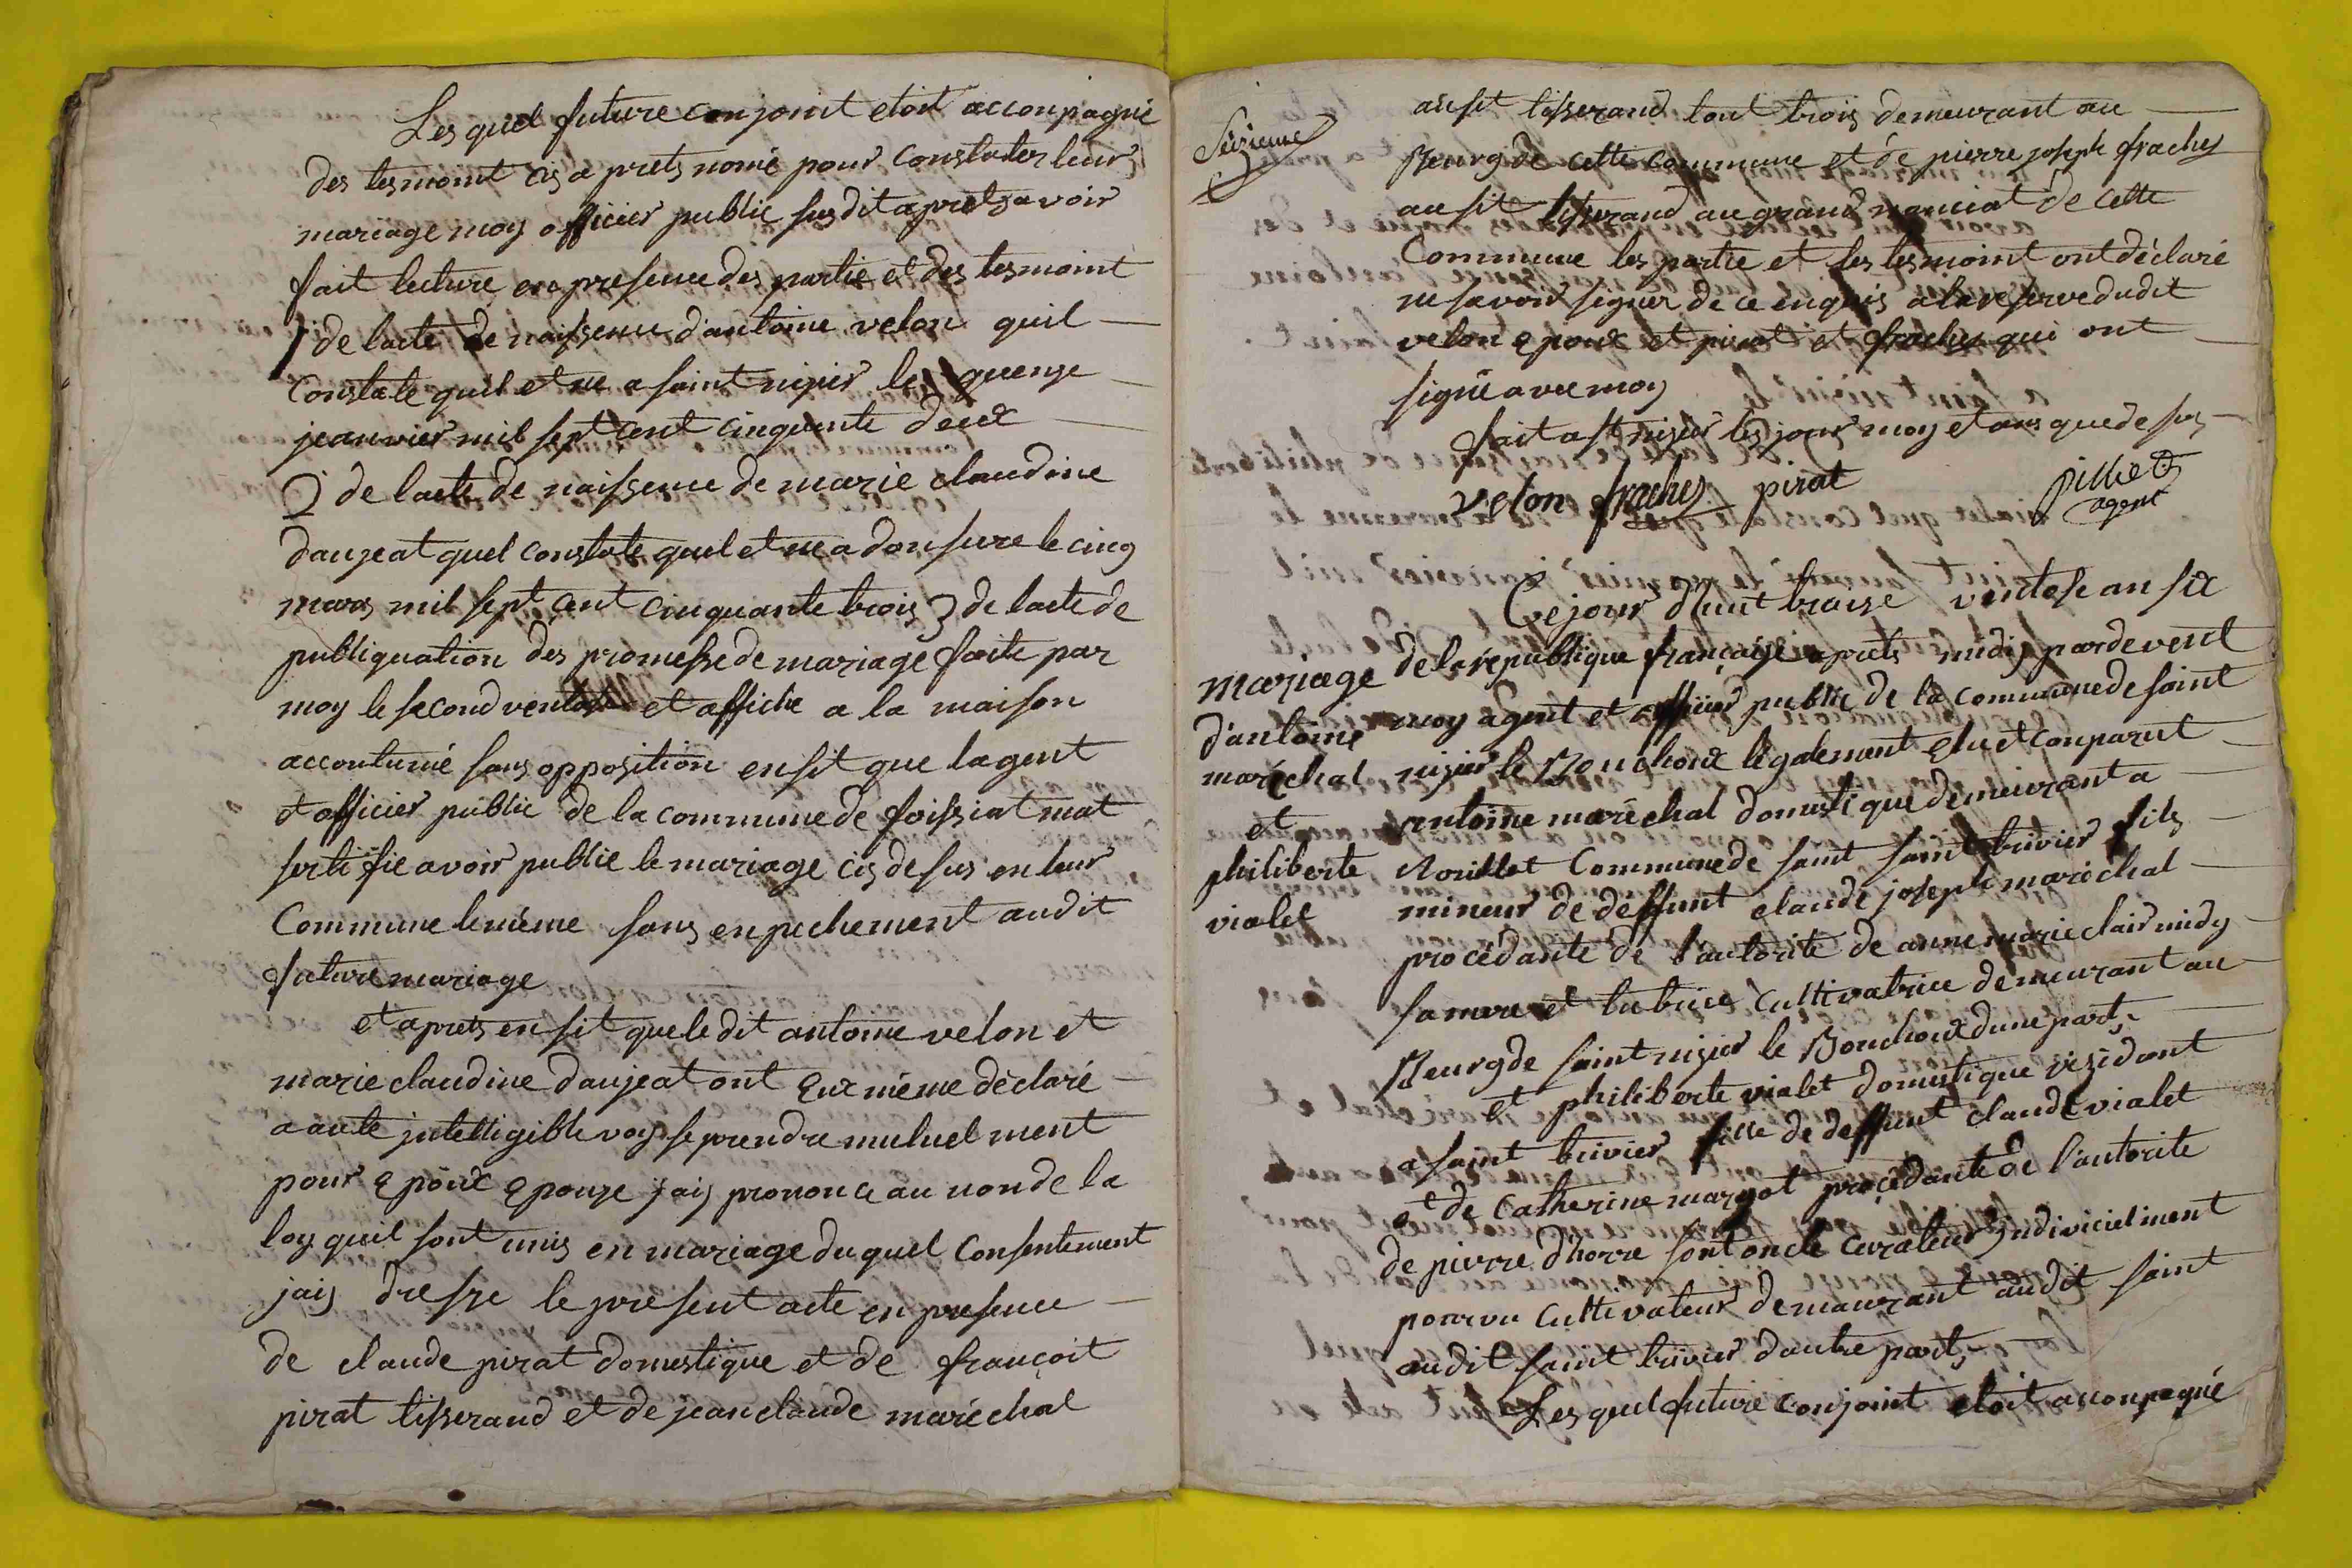 Les quel future conjoint etoit acconpagné
des tesmoint cis a prets nomé pour constater leurs
mariage moy officier public susdit a prets avoir
fait lecture en presence des partie et des tesmoint
1 de lacte de naissence d'antoine velon quil
constate quil et ne a saint nizier le quenze
jeanvier mil sept cent cinquente deux
2 de lacte de naissence de marie claudine
daujeat quel constate quel et ne a donsure le cinq
mars mil sept cent cinquante trois 3 de lacte de
publiquation des promesse de mariage faite par
moy le second ventose et affiche a la maison
accoutumé sans opposition ensit que lagent
et officier public de la commune de foissiat mat
sertifie avoir publie le mariage cis desus en leur
Commune le même sans enpechement audit
future mariage
et aprets ensit que le dit antoine velon et
marie claudine daujeat ont eux même déclaré
a aute jntelligible voy se prendre mutuel ment
pour epoux epouze jais prononce au non de la
loy quil sont unis en mariage du quel consentement
jais dresse le present acte en presence
de claude pirat domestique et de françoit
pirat tisserand et de jean claude maréchal
Seizieme
ausit tisserand tout trois demeurant au
Bourg de cette commune et de pierre joseph frachey
ausit tisserand au grand manciat de cette
Commune les partie et les tesmoint ont déclaré
ne savoir signer de ce enquis a la reserve dudit
velon epoux et pirat et frachey qui ont
signé avec moy
fait a st nizier les jour moy et ans que de sus
velon frachey pirat
pillet
agent
Ce jour d'huit traize ventose an six
mariage
d'antoine
maréchal
et
philiberte
vialet
de la republique française aprets midy pardevent
moy agent et officier public de la commune de saint
nizier le Bouchoux légalement elu et conparut
antoine maréchal domestique demeurant a
Rouillet Commune de saint saint trivier fils
mineur de deffunt claude joseph maréchal
procédante de l'autorite de anne marie clair midy
sa mere et tutrice cultivatrice demeurant au
Bourg de saint nizier le Bouchoux dune part
et philiberte vialet domestique rézidant
a saint trivier fille de deffunt claude vialet
et de Catherine margot procédante de l'autorite
de pierre d'horre sont oncle curateur jndiviciel ment
pourvu cultivateur demeurant audit saint
audit saint trivier dautre part
Les quel future conjoint etoit acconpagné